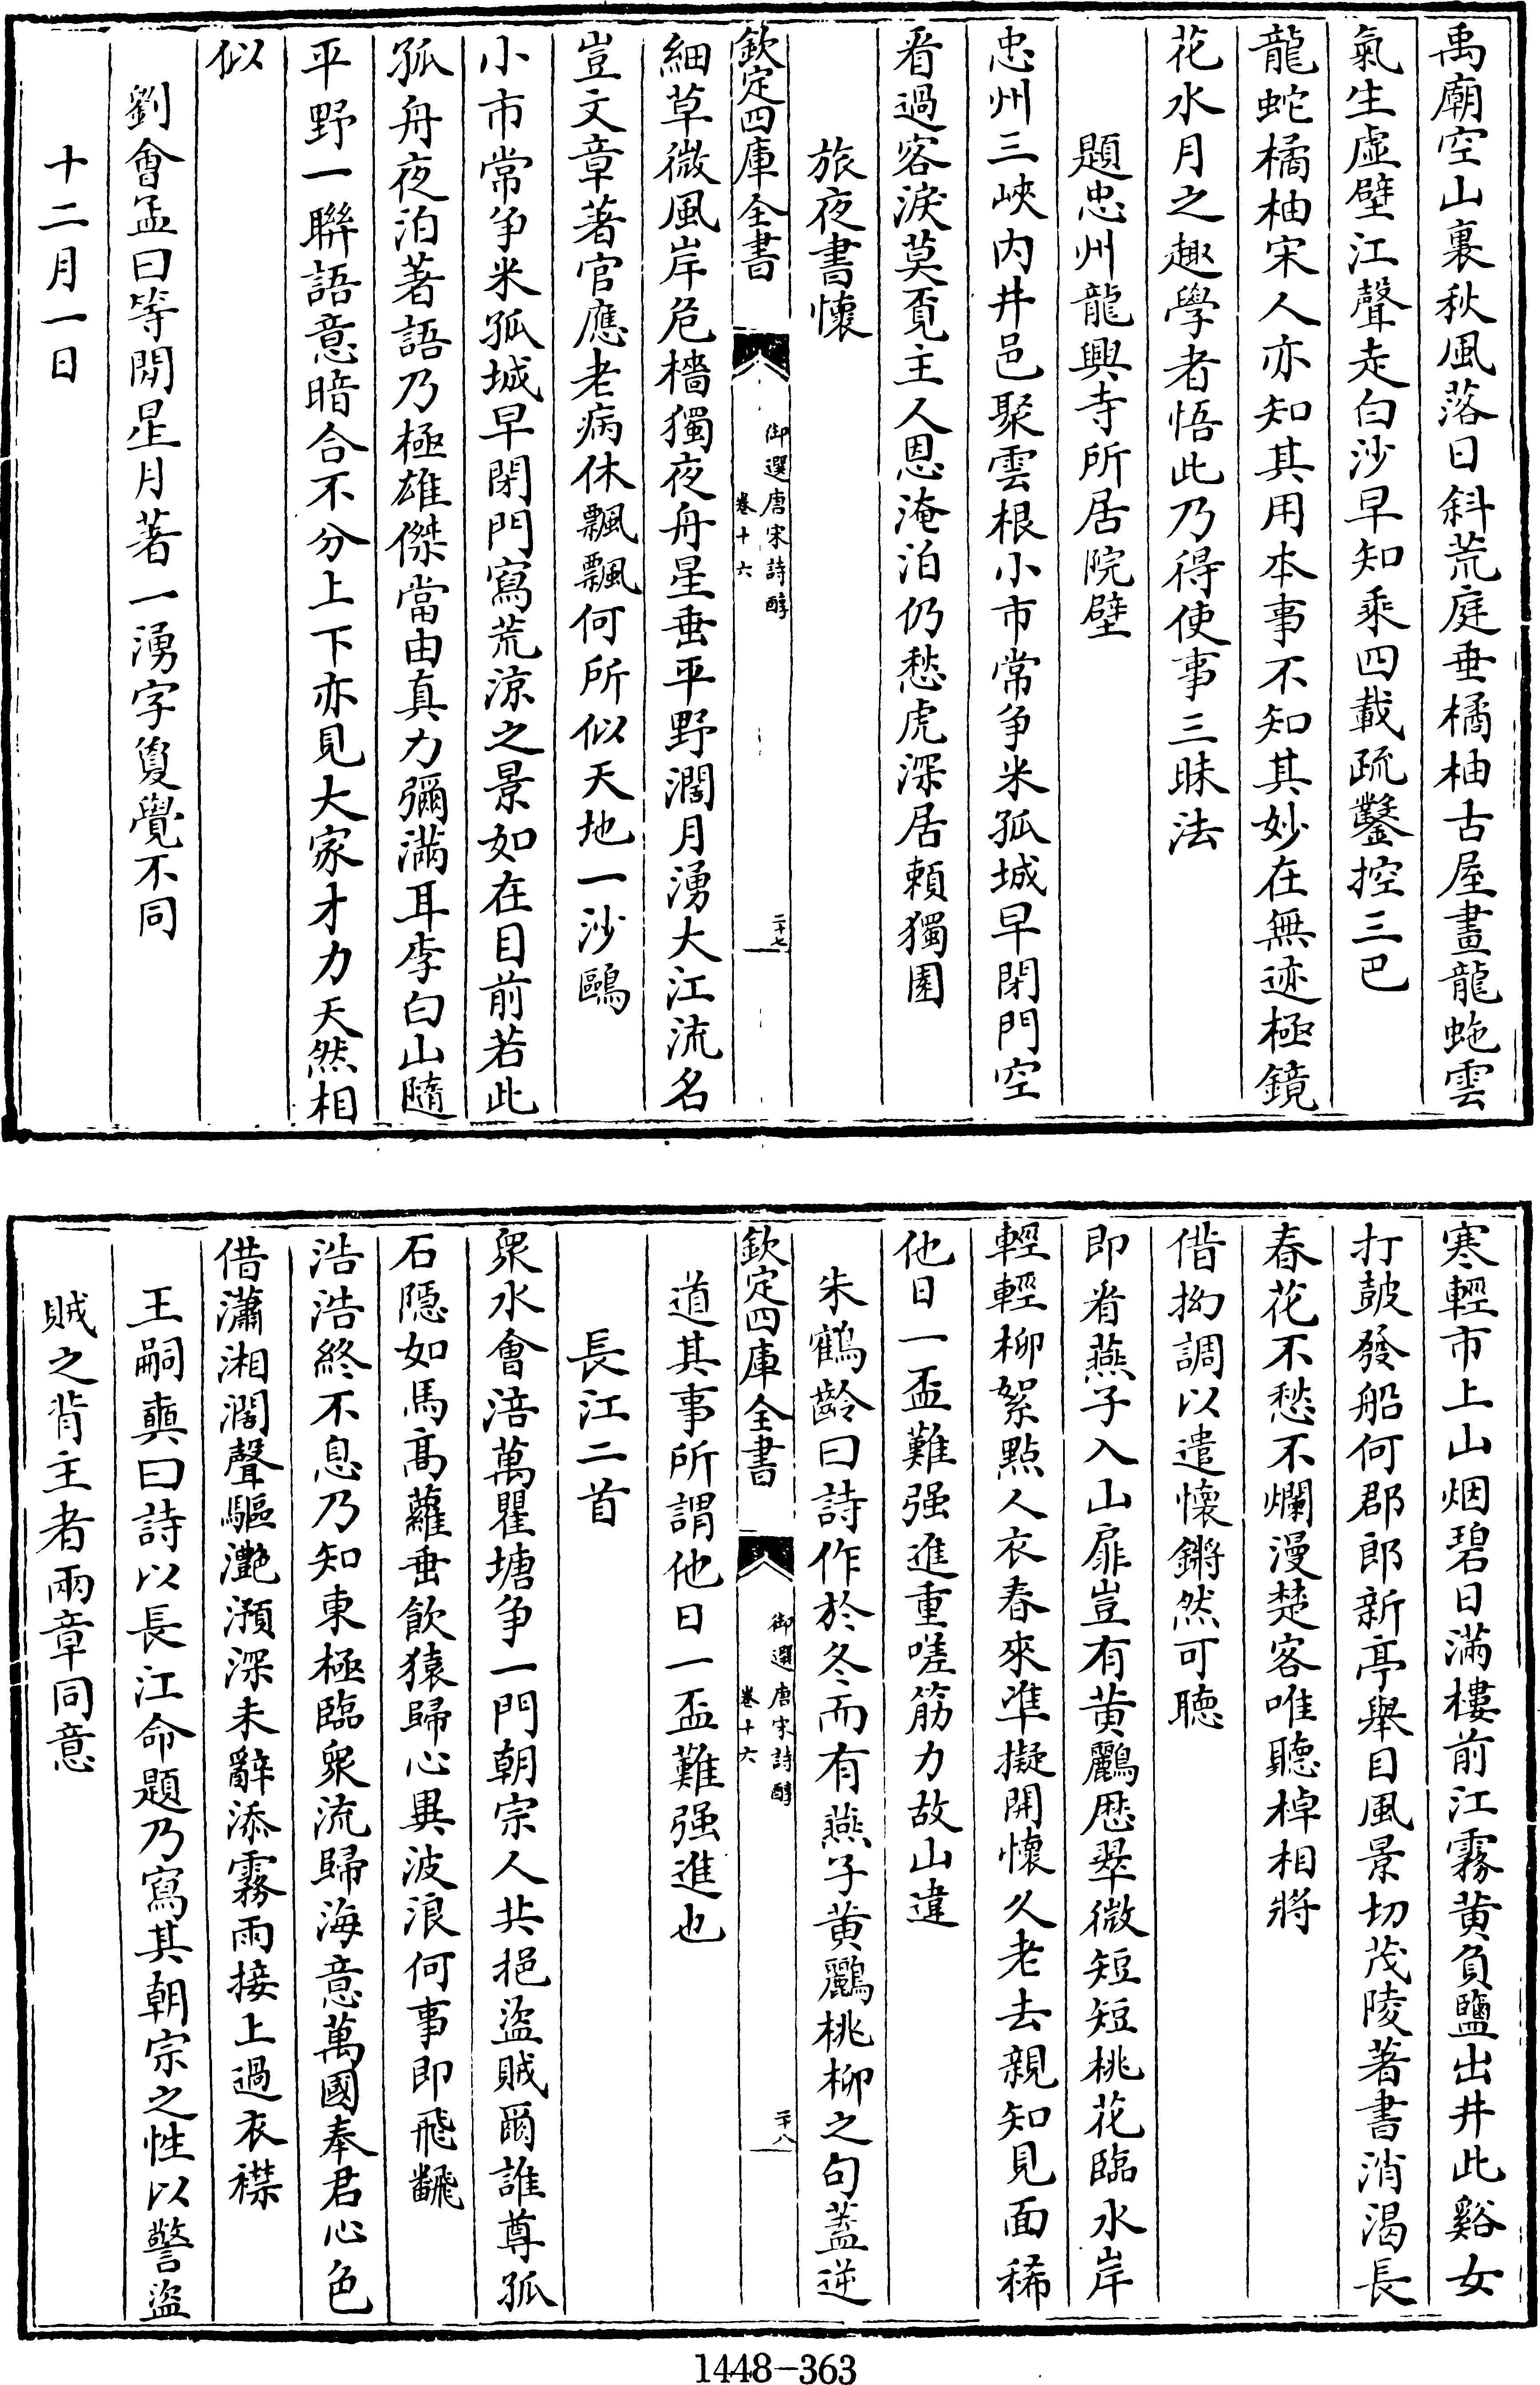 禹廟空山裏秋風落日斜荒庭垂橘柚古屋畫龍虵雲
氣生虛壁江聲走白沙早知乘四載疏鑿控三巴
龍蛇橘柚宋人亦知其用本事不知其妙在無迹極鏡
花水月之趣學者悟此乃得使事三昧法
題忠州龍興寺所居院壁
忠州三峽内井邑聚雲根小市常爭米孤城早閉門空
看過客淚莫覓主人恩淹泊仍愁虎深居賴獨園
旅夜書懷
欽定四庫全書
御選唐宋詩醇
卷十六
二十七
細草微風岸危檣獨夜舟星垂平野濶月湧大江流名
豈文章著官應老病休飄飄何所似天地一沙鷗
小市常爭米孤城早閉門寫荒涼之景如在目前若此
孤舟夜泊著語乃極雄傑當由真力彌滿耳李白山隨
平野一聯語意暗合不分上下亦見大家才力天然相
似
劉會孟曰等閒星月著一湧字夐覺不同
十二月一日
寒輕市上山烟碧日滿樓前江霧黄負鹽出井此谿女
打鼓發船何郡郎新亭舉目風景切茂陵著書消渴長
春花不愁不爛漫楚客唯聽棹相將
借拗調以遣懷鏘然可聽
即看燕子入山扉豈有黄鸝歷翠微短短桃花臨水岸
輕輕柳絮點人衣春來準擬開懷久老去親知見面稀
他日一盃難强進重嗟筋力故山違
朱鶴齡曰詩作於冬而有燕子黄鸝桃柳之句蓋逆
欽定四庫全書
御選唐宋詩醇
卷十六
二十八
道其事所謂他日一盃難强進也
長江二首
衆水會涪萬瞿塘爭一門朝宗人共挹盜賊爾誰尊孤
石隱如馬高蘿垂飲猿歸心異波浪何事即飛翻
浩浩終不息乃知東極臨衆流歸海意萬國奉君心色
借瀟湘濶聲驅灩澦深未辭添霧雨接上過衣襟
王嗣奭曰詩以長江命題乃寫其朝宗之性以警盜
賊之背主者兩章同意
1448-363